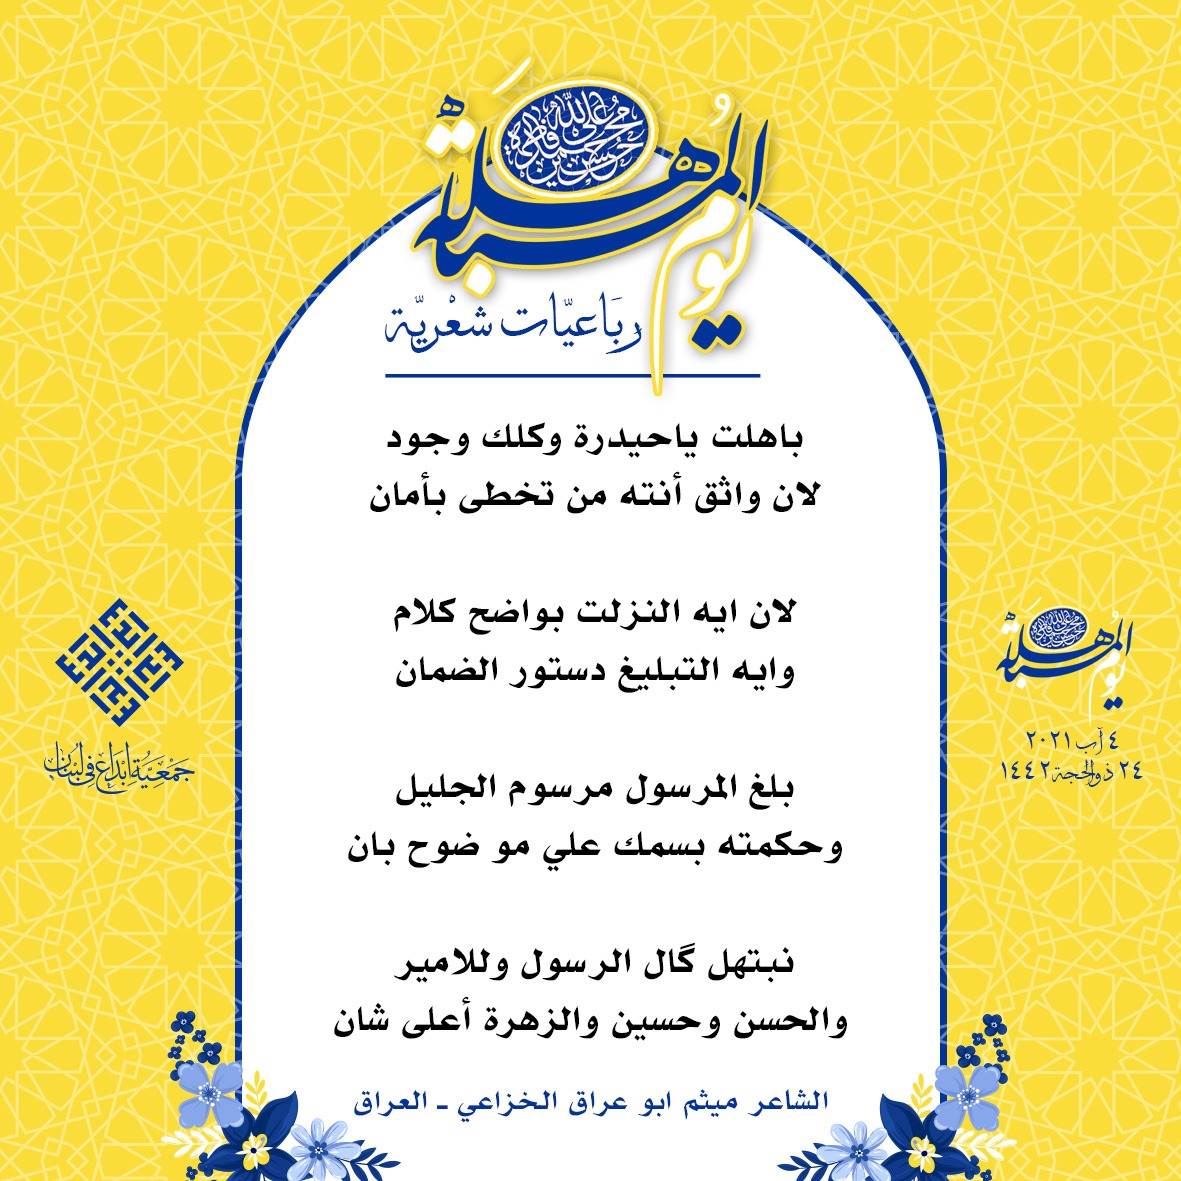 يوم المباهلة
الله محمد علي فاطمة حسن حسين
رباعيّات شعْريّة
باهلت ياحيدرة وكلك وجود
لان واثق أنته من تخطى بأمان
لان ايه النزلت بواضح كلام
وايه التبليغ دستور الضمان
بلغ المرسول مرسوم الجليل
وحكمته بسمك علي مو ضوح بان
نبتهل گال الرسول وللامير
والحسن وحسين والزهرة أعلى شان
الشاعر ميثم ابو عراق الخزاعي ـ العراق
يوم المباهلة
٤ آب ٢٠٢١
٢٤ ذو الحجة ١٤٤٢
جمعيّة إبداع في لبنان